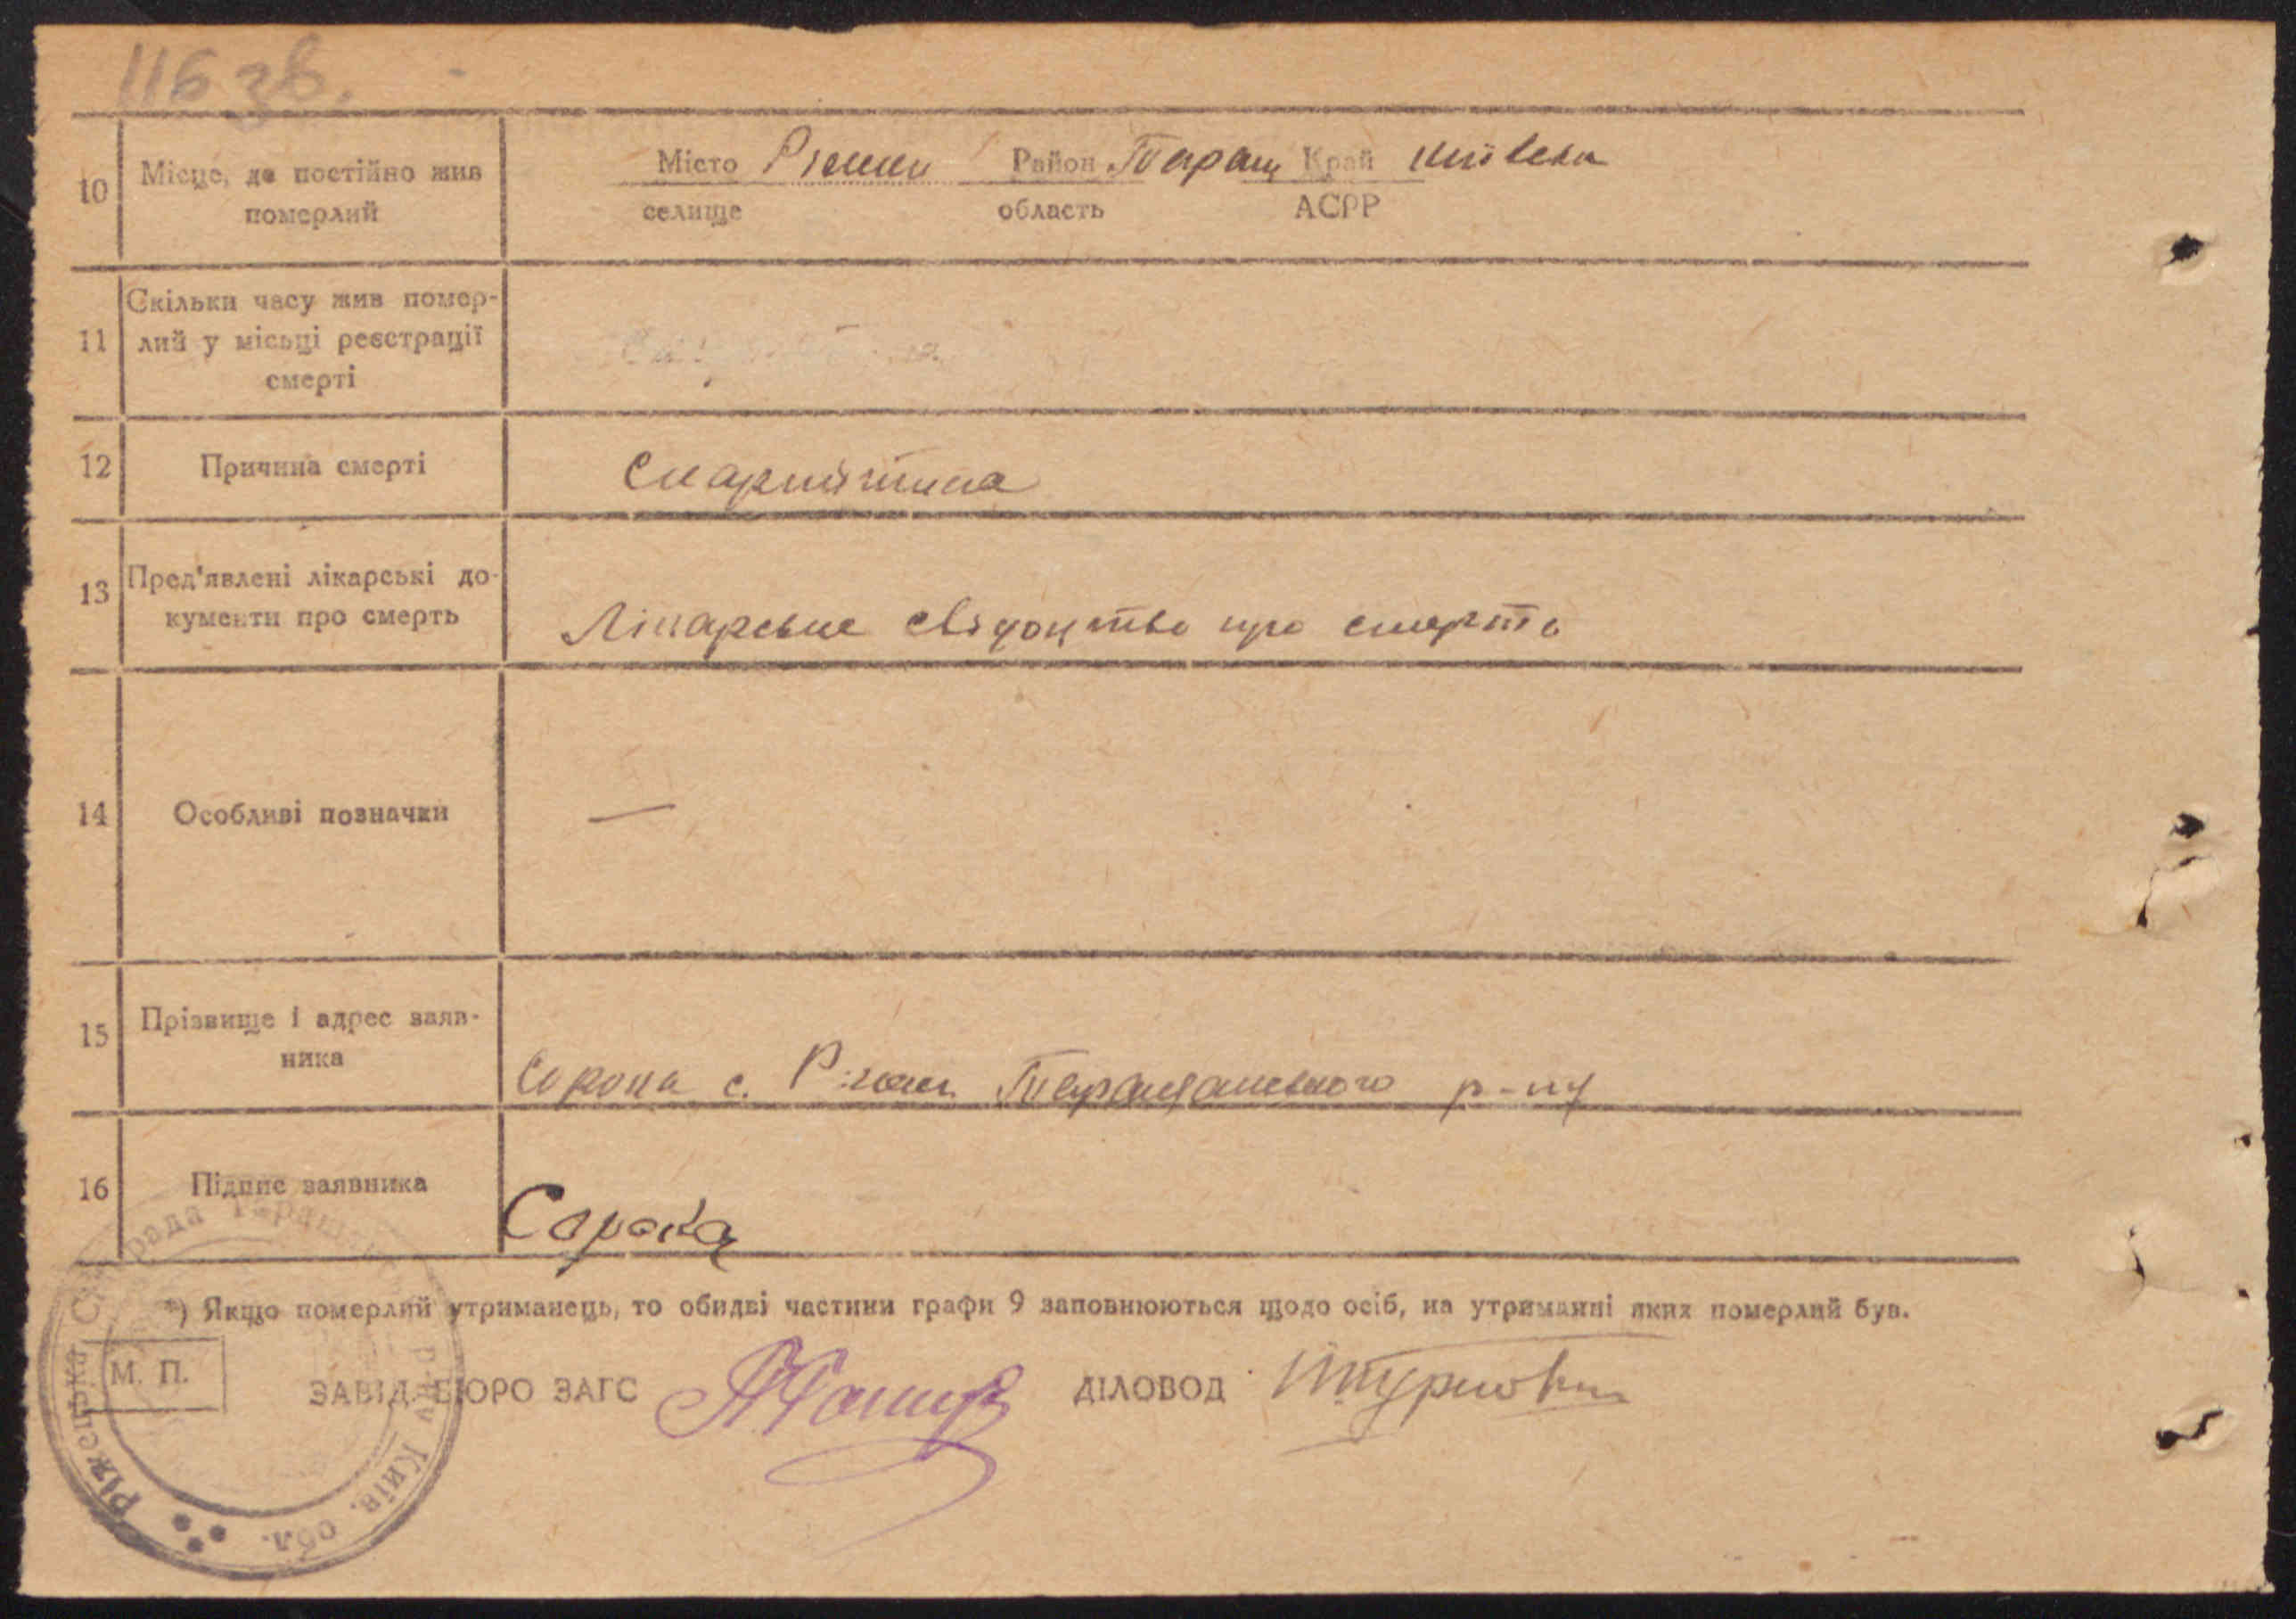 116 зв.
10 Місце, де постійно жив Місто Ріжки Район Таращ Край Київська
померлий селище область АСРР
Скільки часу жив помер-
11 лий у місьці реєстрації
смерті
12 Причина смерті Скарлятина
13 Пред'явлені лікарські до-
кументи про смерть Лікарське свідоцтво про смерть
14 Особливі позначки —
15 Прізвище і адрес заяв-
ника
Сорока с. Ріжки Таращанського р-ну
16 Підпис заявника Сорока
*) Якщо померлий утриманець, то обидві частини графи 9 заповнюються щодо осіб, на утриманні яких померлий був.
М. П.
ЗАВІД. БЮРО ЗАГС ДІЛОВОД
Ріжська Сіл рада Таращ р-ну Київ. обл.